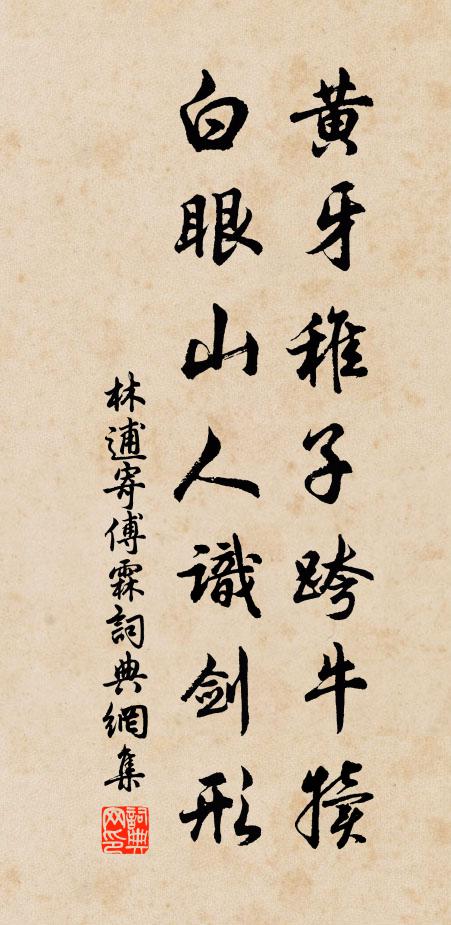 黃牙稚子跨牛犢
白眼山人識劍形
林逋寄傅霖詞典網集
詞典网印